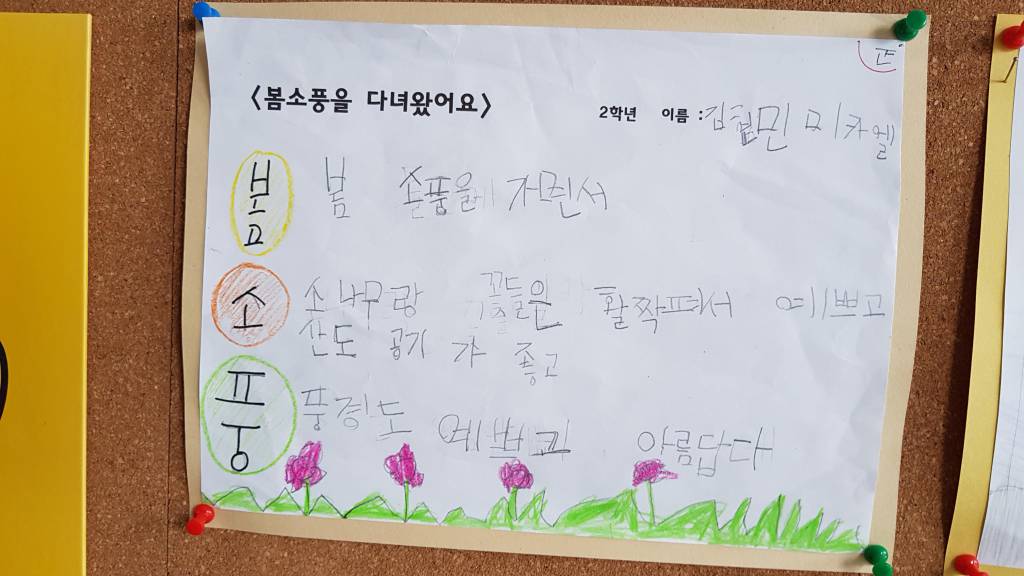 <봄소풍을 다녀왔어요>
2학년 이름 : 김철민 미카엘
봄 봄 소풍을 가면서
소 소나무랑 꽃들은 활짝펴서 예쁘고
산도 공기가 좋고
풍 풍경도 예쁘고 아름답다